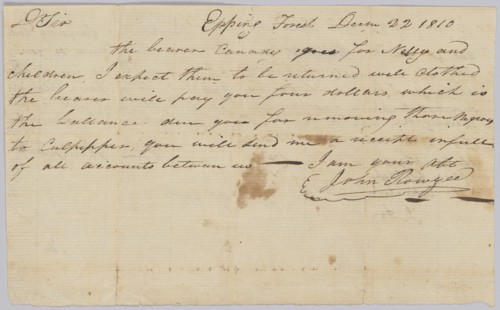 Dr Sir Epping Forest Decm 22 1810
the bearer goes for Nelly and
children, I expect them to be returned well clothed
the bearer will pay you four dollars which is
the ballance due you for removing those Negroes
to Culpepper, you will send me a receipt in full
of all accounts betwen us — I am your Obt
John Rowzee